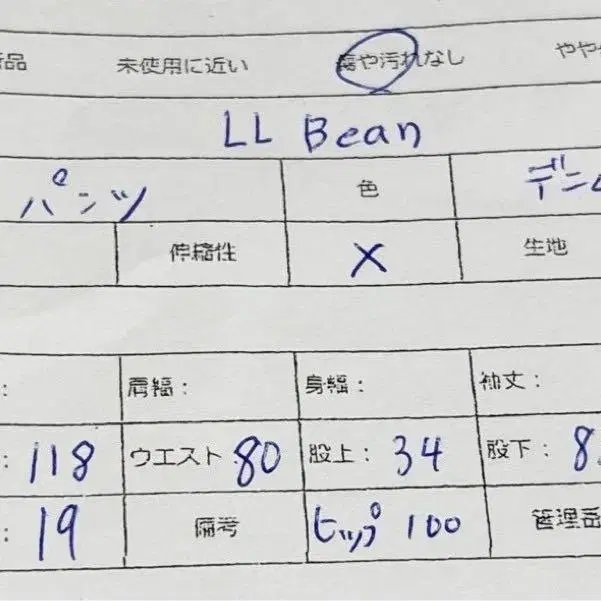 品 未使用に近い 傷や汚れなし やや
LL Bean
パンツ 色 デニム
伸縮性 × 生地
: 肩幅: 身幅: 袖丈:
: 118 ウエスト 80 股上: 34 股下: 8
: 19 備考 ヒップ 100 管理番